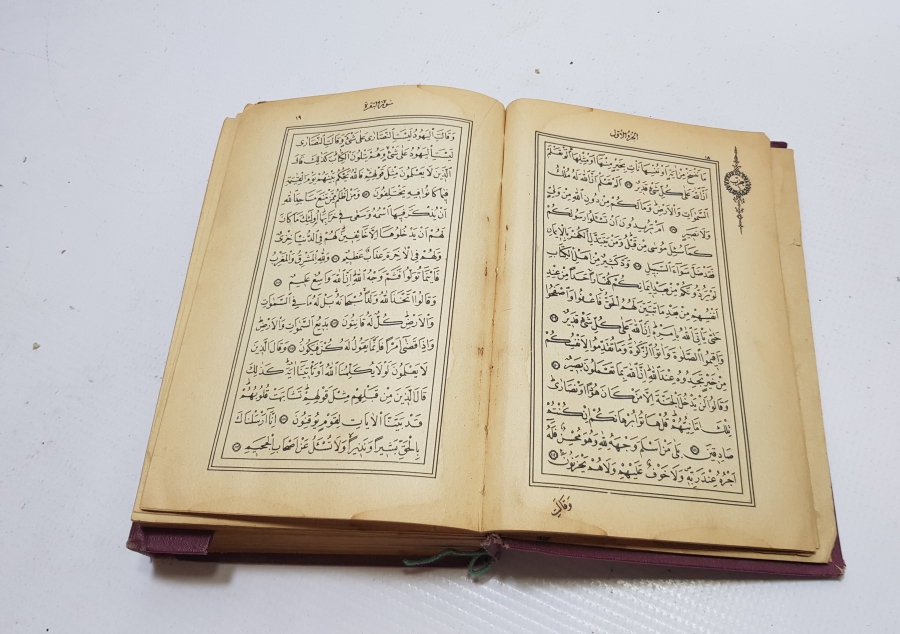 الجزء الأول
١٨
مَا نَنْسَخْ مِنْ اٰيَةٍ اَوْ نُنْسِهَا نَأْتِ بِخَيْرٍ مِنْهَا اَوْ مِثْلِهَا اَلَمْ تَعْلَمْ
اَنَّ اللّٰهَ عَلٰى كُلِّ شَيْءٍ قَدِيرٌ اَلَمْ تَعْلَمْ اَنَّ اللّٰهَ لَهُ مُلْكُ
السَّمٰوَاتِ وَالْاَرْضِ وَمَا لَكُمْ مِنْ دُونِ اللّٰهِ مِنْ وَلِيٍّ
وَلَا نَصِيرٍ اَمْ تُرِيدُونَ اَنْ تَسْـَٔلُوا رَسُولَكُمْ
كَمَا سُئِلَ مُوسٰى مِنْ قَبْلُ وَمَنْ يَتَبَدَّلِ الْكُفْرَ بِالْاِيمَانِ
فَقَدْ ضَلَّ سَوَاءَ السَّبِيلِ وَدَّ كَثِيرٌ مِنْ اَهْلِ الْكِتَابِ
لَوْ يَرُدُّونَكُمْ مِنْ بَعْدِ اِيمَانِكُمْ كُفَّارًا حَسَدًا مِنْ عِنْدِ
اَنْفُسِهِمْ مِنْ بَعْدِ مَا تَبَيَّنَ لَهُمُ الْحَقُّ فَاعْفُوا وَاصْفَحُوا
حَتّٰى يَأْتِيَ اللّٰهُ بِاَمْرِهِ اِنَّ اللّٰهَ عَلٰى كُلِّ شَيْءٍ قَدِيرٌ
وَاَقِيمُوا الصَّلٰوةَ وَاٰتُوا الزَّكٰوةَ وَمَا تُقَدِّمُوا لِاَنْفُسِكُمْ
مِنْ خَيْرٍ تَجِدُوهُ عِنْدَ اللّٰهِ اِنَّ اللّٰهَ بِمَا تَعْمَلُونَ بَصِيرٌ
وَقَالُوا لَنْ يَدْخُلَ الْجَنَّةَ اِلَّا مَنْ كَانَ هُودًا اَوْ نَصَارٰى
تِلْكَ اَمَانِيُّهُمْ قُلْ هَاتُوا بُرْهَانَكُمْ اِنْ كُنْتُمْ
صَادِقِينَ بَلٰى مَنْ اَسْلَمَ وَجْهَهُ لِلّٰهِ وَهُوَ مُحْسِنٌ فَلَهُ
اَجْرُهُ عِنْدَ رَبِّهِ وَلَا خَوْفٌ عَلَيْهِمْ وَلَا هُمْ يَحْزَنُونَ
وَقَالَتِ
سورة البقرة
١٩
وَقَالَتِ الْيَهُودُ لَيْسَتِ النَّصَارٰى عَلٰى شَيْءٍ وَقَالَتِ النَّصَارٰى
لَيْسَتِ الْيَهُودُ عَلٰى شَيْءٍ وَهُمْ يَتْلُونَ الْكِتَابَ كَذٰلِكَ قَالَ
الَّذِينَ لَا يَعْلَمُونَ مِثْلَ قَوْلِهِمْ فَاللّٰهُ يَحْكُمُ بَيْنَهُمْ يَوْمَ الْقِيٰمَةِ
فِيمَا كَانُوا فِيهِ يَخْتَلِفُونَ وَمَنْ اَظْلَمُ مِمَّنْ مَنَعَ مَسَاجِدَ اللّٰهِ
اَنْ يُذْكَرَ فِيهَا اسْمُهُ وَسَعٰى فِي خَرَابِهَا اُولٰئِكَ مَا كَانَ
لَهُمْ اَنْ يَدْخُلُوهَا اِلَّا خَائِفِينَ لَهُمْ فِي الدُّنْيَا خِزْيٌ
وَلَهُمْ فِي الْاٰخِرَةِ عَذَابٌ عَظِيمٌ وَلِلّٰهِ الْمَشْرِقُ وَالْمَغْرِبُ
فَاَيْنَمَا تُوَلُّوا فَثَمَّ وَجْهُ اللّٰهِ اِنَّ اللّٰهَ وَاسِعٌ عَلِيمٌ
وَقَالُوا اتَّخَذَ اللّٰهُ وَلَدًا سُبْحَانَهُ بَلْ لَهُ مَا فِي السَّمٰوَاتِ
وَالْاَرْضِ كُلٌّ لَهُ قَانِتُونَ بَدِيعُ السَّمٰوَاتِ وَالْاَرْضِ
وَاِذَا قَضٰى اَمْرًا فَاِنَّمَا يَقُولُ لَهُ كُنْ فَيَكُونُ وَقَالَ الَّذِينَ
لَا يَعْلَمُونَ لَوْلَا يُكَلِّمُنَا اللّٰهُ اَوْ تَأْتِينَا اٰيَةٌ كَذٰلِكَ
قَالَ الَّذِينَ مِنْ قَبْلِهِمْ مِثْلَ قَوْلِهِمْ تَشَابَهَتْ قُلُوبُهُمْ
قَدْ بَيَّنَّا الْاٰيَاتِ لِقَوْمٍ يُوقِنُونَ اِنَّا اَرْسَلْنَاكَ
بِالْحَقِّ بَشِيرًا وَنَذِيرًا وَلَا تُسْـَٔلُ عَنْ اَصْحَابِ الْجَحِيمِ